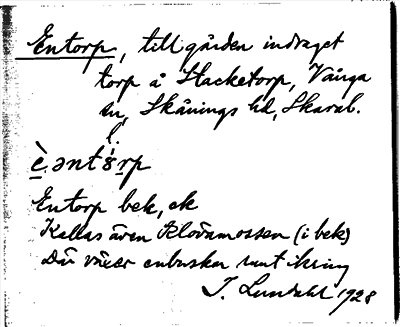 Entorp, till gården indraget
torp å Stacketorp, Vånga
sn, Skånings hd, Skarab.
l.
è.ənt'8rp
Entorp bek, ek
Kallas även Klovamossen (i bek)
Där växer enbuskar runt ikring
I. Lundahl 1928